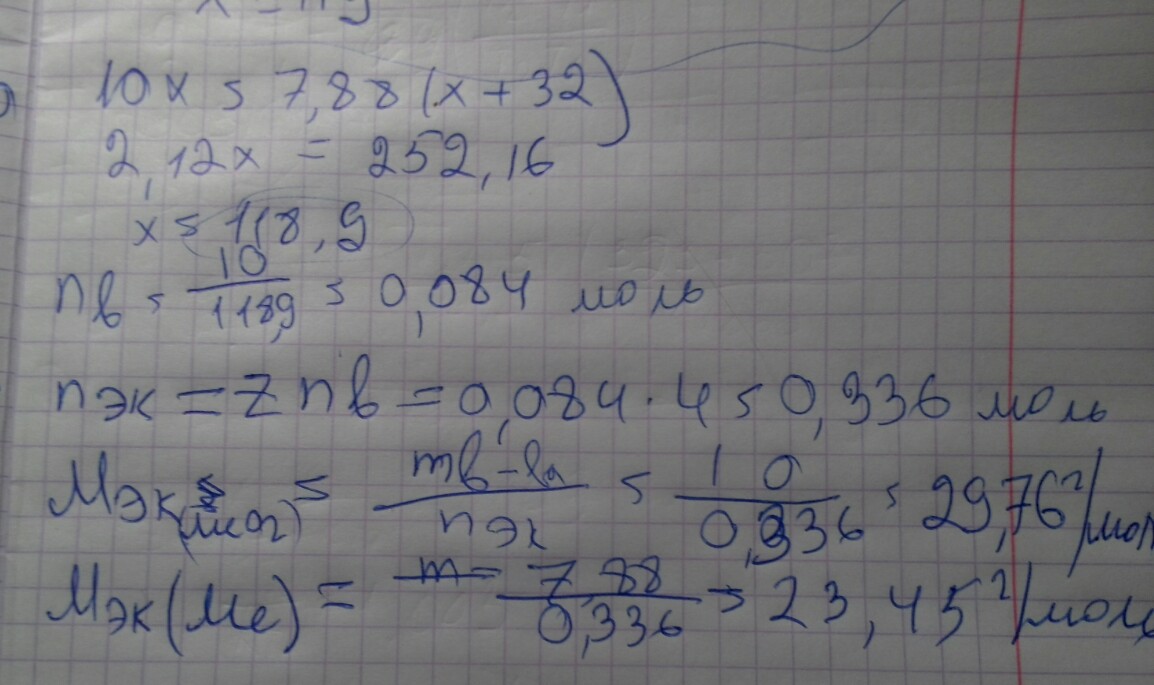 10x = 7,88 (x + 32)
2,12x = 252,16
x = 118,9
nв = 10/118,9 = 0,084 моль
nэк = z nв = 0,084 · 4 = 0,336 моль
Mэк = mв-ва/nэк = 10/0,336 = 29,76 г/мол
Mэк(Me) = 7,88/0,336 = 23,45 г/моль